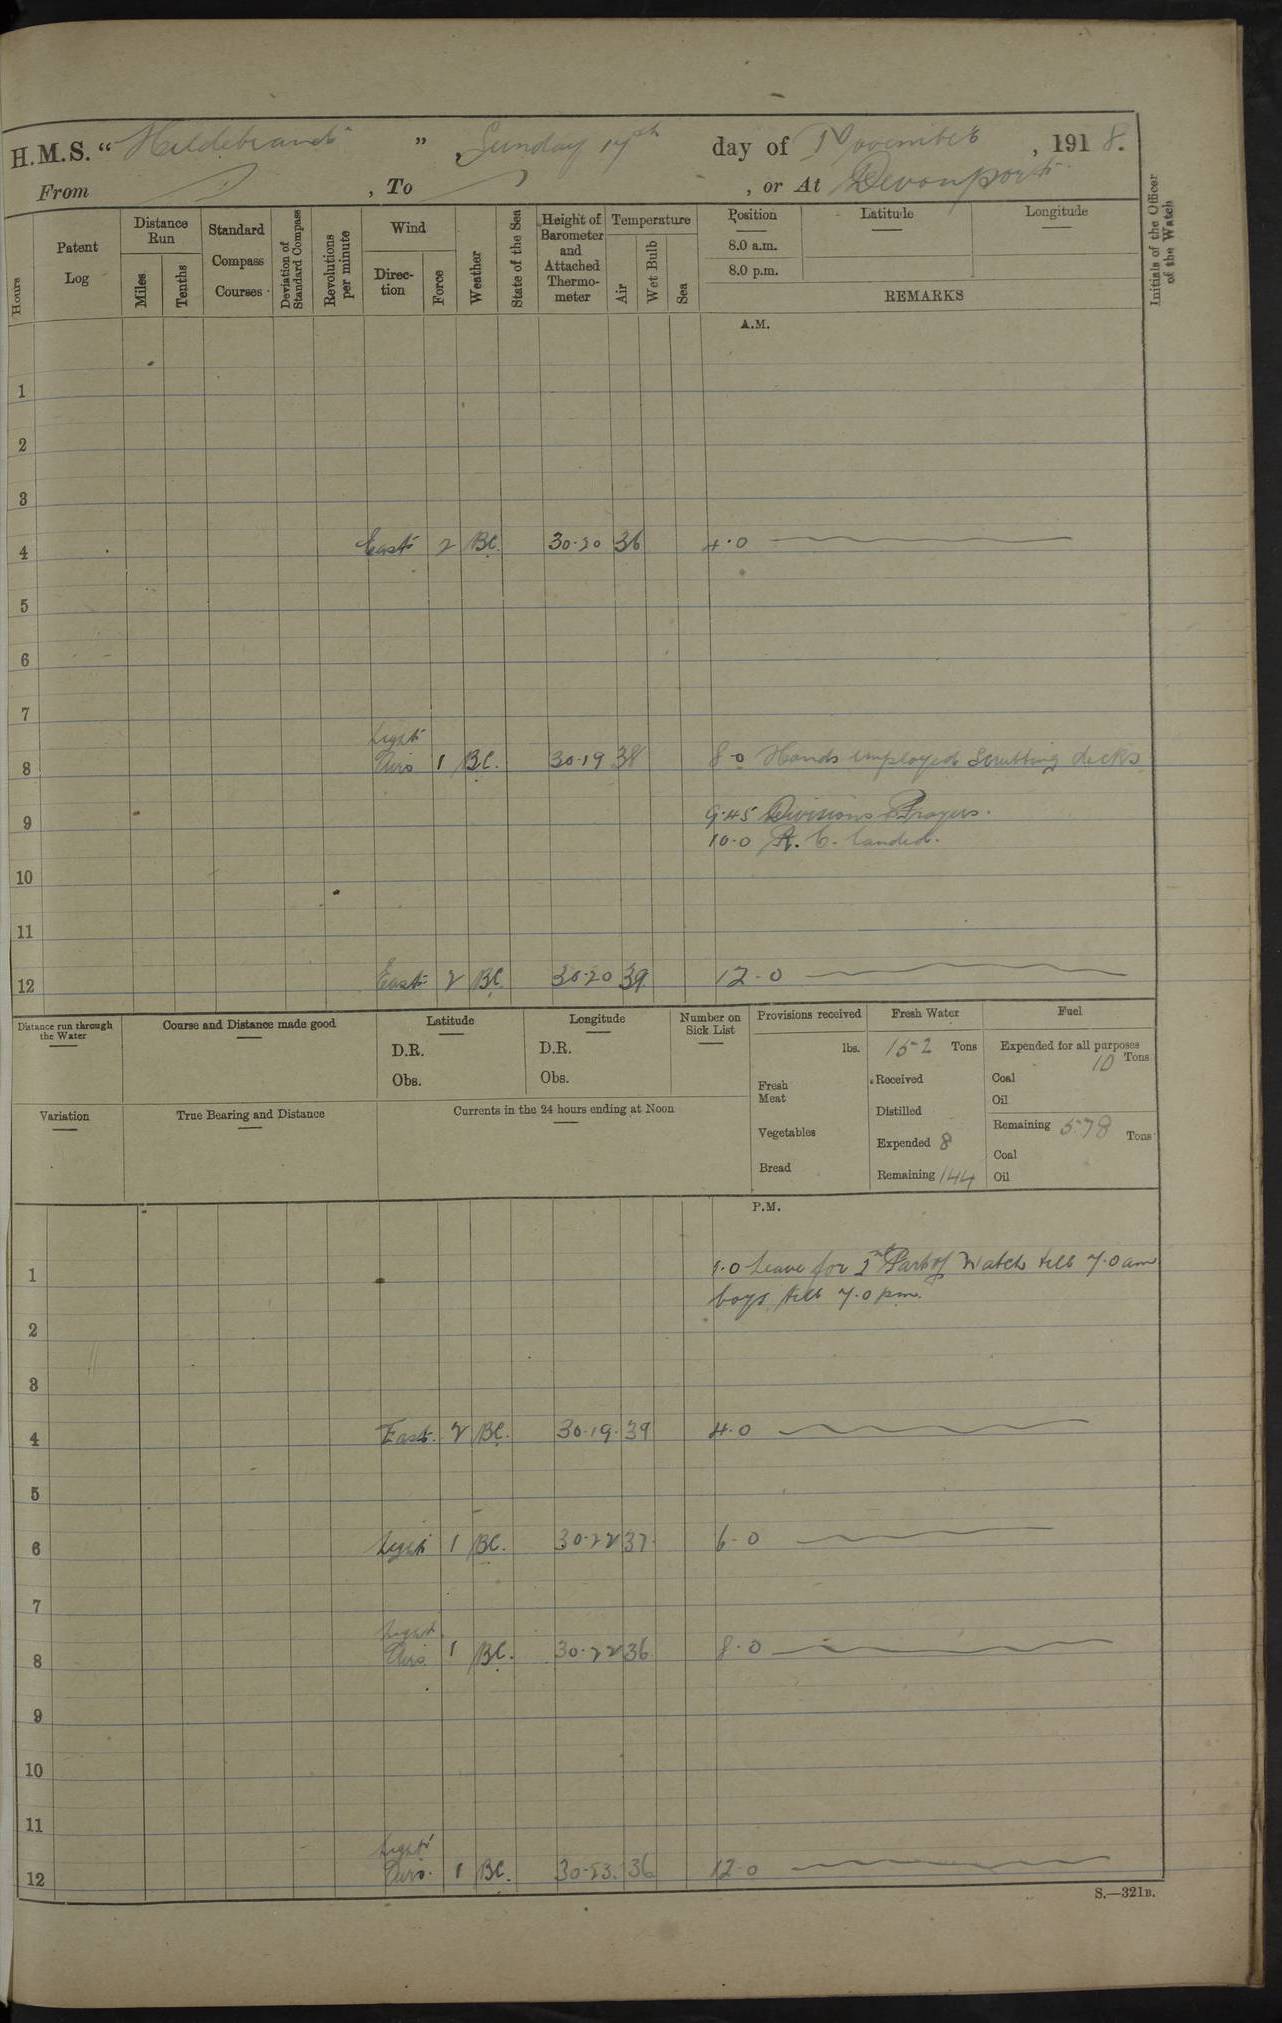 H.M.S. “Hildebrand” , Sunday 17th day of November , 1918.
From , To , or At Devonport
Hours
Patent Log
Distance Run
Miles
Tenths
Standard Compass Courses
Deviation of Standard Compass
Revolutions per minute
Wind
Direc-tion
Force
Weather
State of the Sea
Height of Barometer and Attached Thermo-meter
Temperature
Air
Wet Bulb
Sea
Position Latitude Longitude
8.0 a.m.
8.0 p.m.
REMARKS
Initials of the Officer of the Watch
A.M.
1
2
3
4 East 2 BC. 30.20 36 4.0
5
6
7
8 Light Airs 1 BC. 30.19 38 8.0 Hands employed Scrubbing decks
9 9.45 Divisions & Prayers.
10.0 R. C. landed.
10
11
12 East 2 BC. 30.20 39 12.0
Distance run through the Water
Course and Distance made good
Latitude
D.R.
Obs.
Longitude
D.R.
Obs.
Number on Sick List
Provisions received
lbs.
Fresh Meat
Vegetables
Bread
Fresh Water
152 Tons
Received
Distilled
Expended 8
Remaining 144
Fuel
Expended for all purposes
10 Tons
Coal
Oil
Remaining 578 Tons
Coal
Oil
Variation
True Bearing and Distance
Currents in the 24 hours ending at Noon
P.M.
1 1.0 Leave for 2nd Part of Watch till 7.0 am
boys till 7.0 pm.
2
3
4 East. 2 BC. 30.19. 39 4.0
5
6 Light 1 BC. 30.22 37. 6.0
7
8 Light Airs 1 BC. 30.22 36 8.0
9
10
11
12 Light Airs. 1 BC. 30.23. 36 12.0
S.—321B.